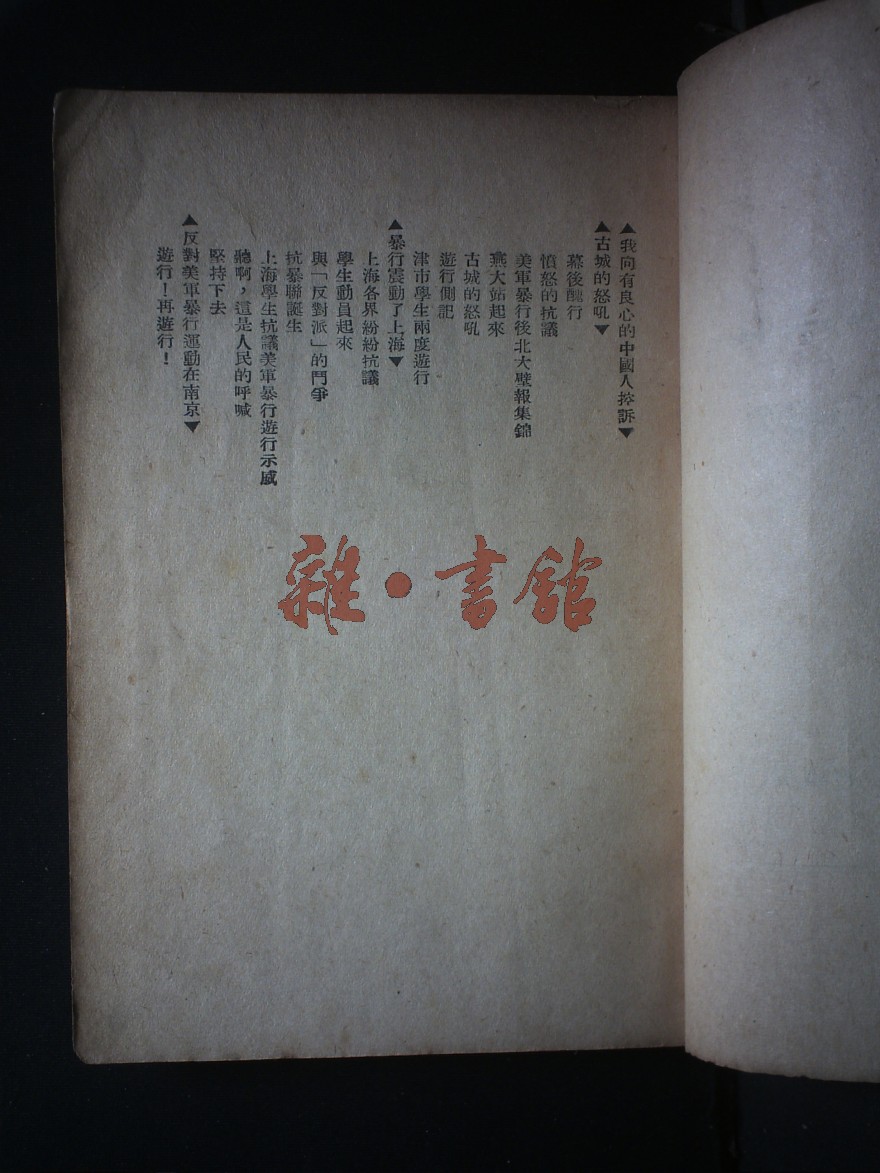 ▲我向有良心的中國人控訴▼
▲古城的怒吼▼
幕後醜行
憤怒的抗議
美軍暴行後北大壁報集錦
燕大站起來
古城的怒吼
遊行側記
津市學生兩度遊行
▲暴行震動了上海▼
上海各界紛紛抗議
學生動員起來
與「反對派」的鬥爭
抗暴聯誕生
上海學生抗議美軍暴行遊行示威
聽啊,這是人民的呼喊
堅持下去
▲反對美軍暴行運動在南京▼
遊行!再遊行!
雜·書館